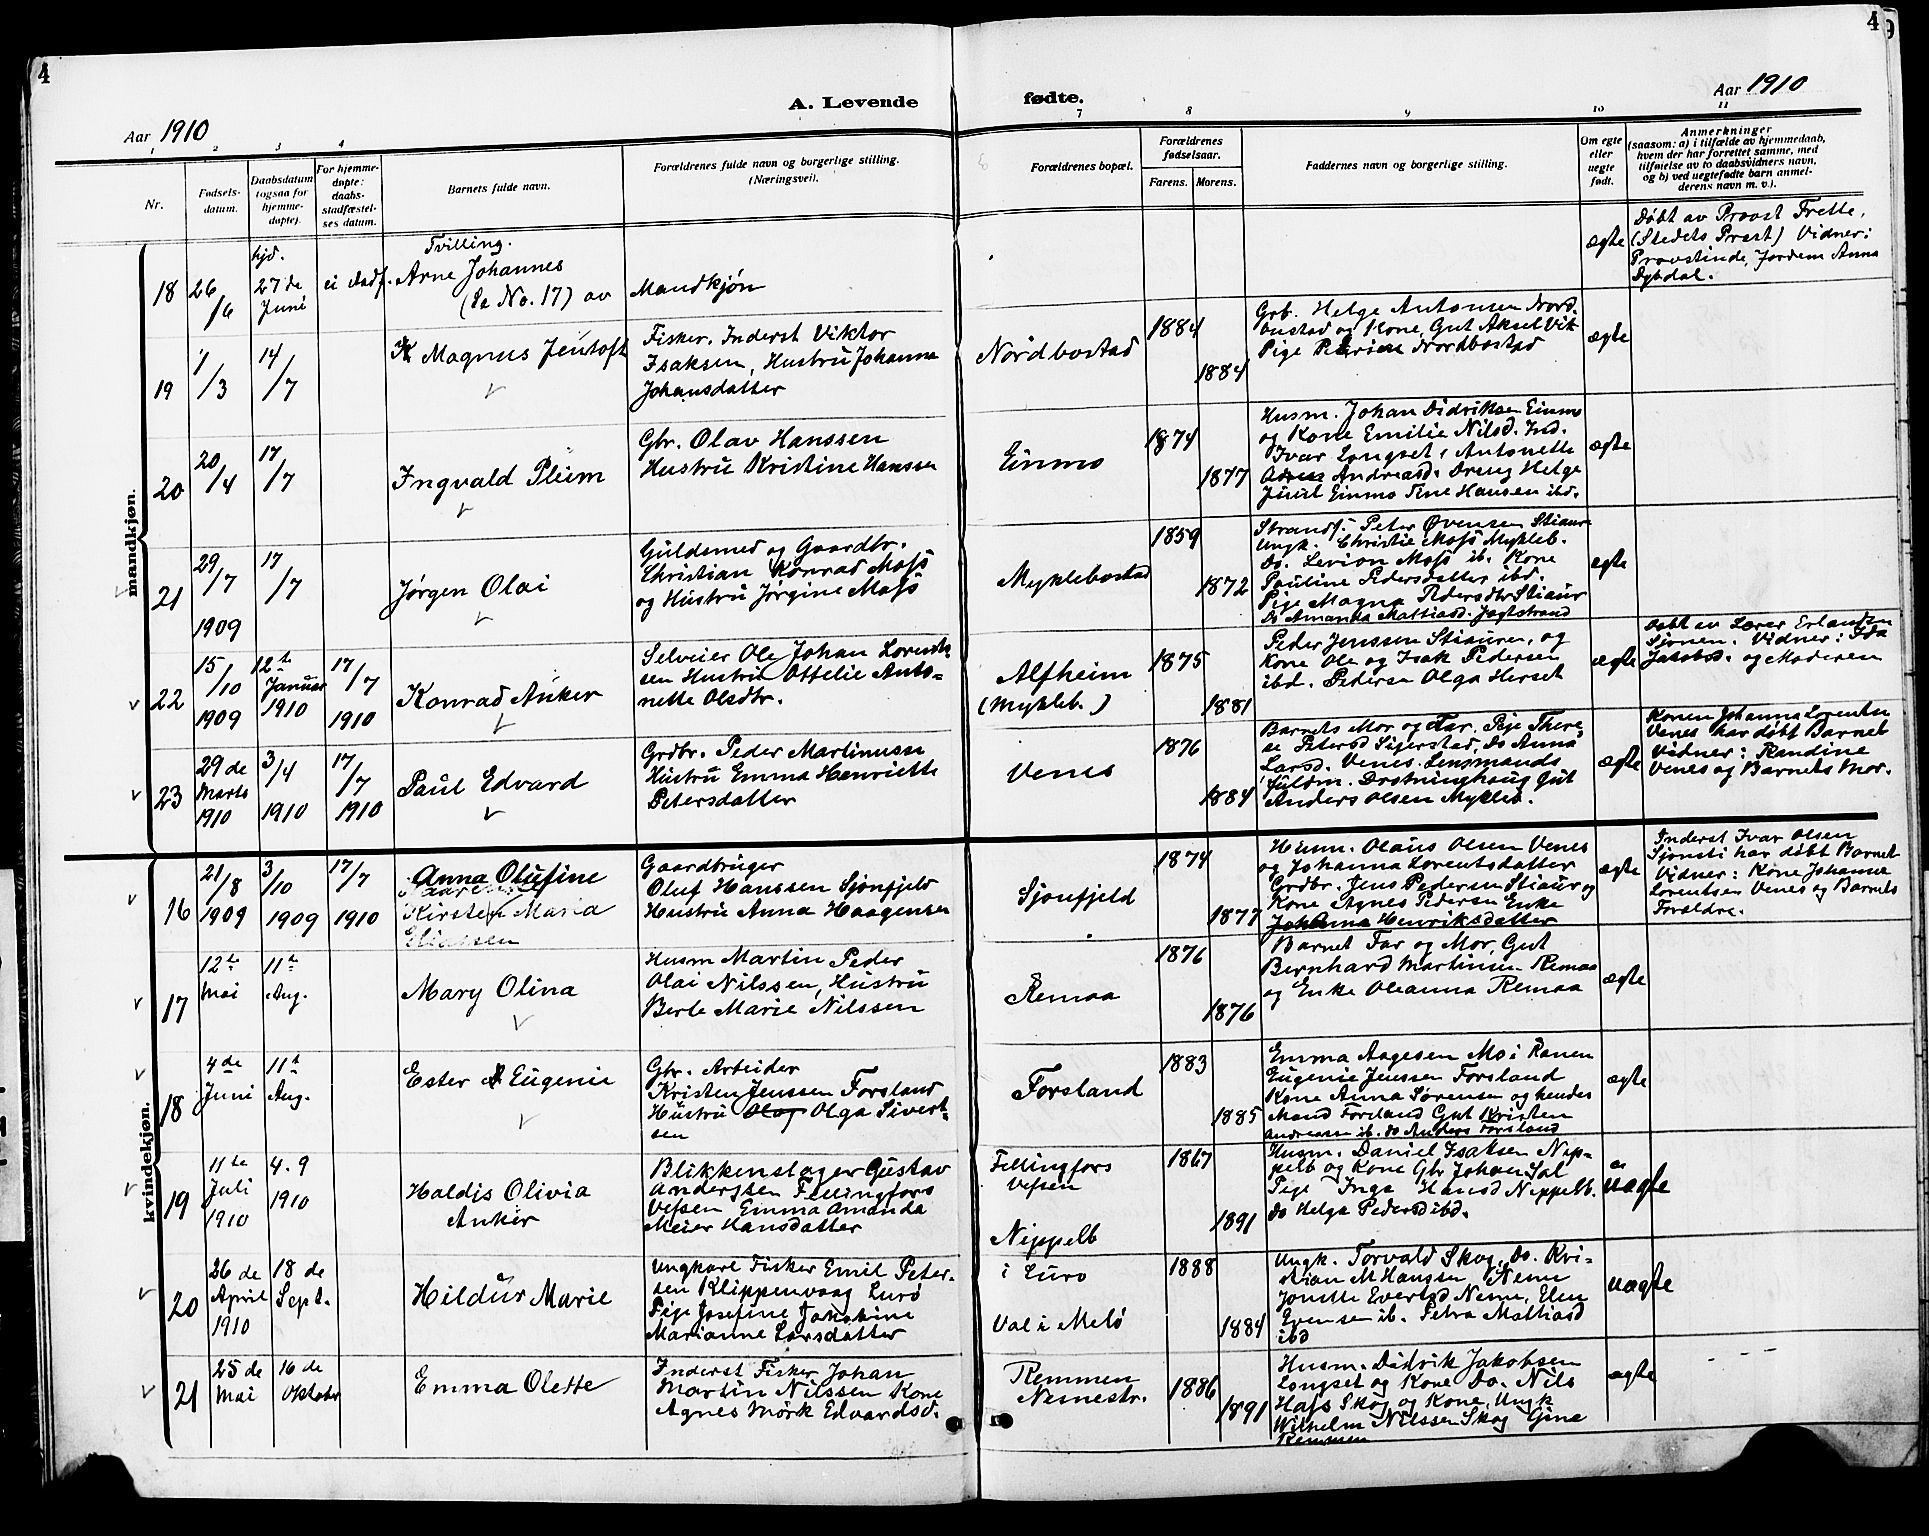 4
4
A. Levende fødte.
Aar 1910
Aar 1910
1 2 3 4 7 8 9 10 11
Nr.
Fødsels-
datum.
Daabsdatum
(ogsaa for
hjemme-
døpte).
For hjemme-
døpte:
daabs-
stadfæstel-
ses datum.
Barnets fulde navn.
Forældrenes fulde navn og borgerlige stilling.
(Næringsvei).
Forældrenes bopæl.
Forældrenes
fødselsaar.
Farens. Morens.
Faddernes navn og borgerlige stilling.
Om egte
eller
uegte
født.
Anmerkninger
(saasom: a) i tilfælde av hjemmedaab,
hvem der har forrettet samme, med
tilføielse av to daabsvidners navn,
og b) ved uegtefødte barn anmel-
derens navn m. v.).
mandkjøn.
18
26/6
hjd.
27 de
Juni
ei stadf.
Tvilling.
Arne Johannes
(Se No. 17) av
Mandkjøn
ægte
Døbt av Provst Frette,
(Stedets Prest) Vidner:
Provstinde, Jordem Anna
Dybdal.
19
1/3
14/7
Magnus Jentoft
Fisker. Inderst Viktor
Isaksen, Hustru Johanna
Johansdatter
Nordbostad
1884
1884
Grb. Helge Antonsen Nord-
bostad og Kone, Gut Aksel Vik
Pige Petrine Nordbostad
ægte
20
20/4
17/7
Ingvald Pleim
Gbr. Olav Hanssen
Hustru Kristine Hanssen
Einmo
1874
1877
Husm. Johan Didriksen Einmo
og Kone Emilie Nilsd. Ind.
Ivar Longset, Antonette
Andreasd. Dreng Helge
Juul Einmo Tine Hansen ibd.
ægte
21
29/7
1909
17/7
Jørgen Olai
Guldsmed og Gaardbr.
Christian Konrad Moss
og Hustru Jørgine Moss
Myklebostad
1859
1872
Strands. Peter Øvensen Stiaur
Ungk. Christie Moss Mykleb.
Do. Levion Moss ib. Kone
Pauline Pedersdatter ibd.
Pige Magna Pedersdtr Stiaur
Do Amanda Mattiasd. Jagtstrand
ægte
22
15/10
1909
12te
Januar
1910
17/7
1910
Konrad Anker
Selveier Ole Johan Lorent-
sen Hustru Ottelie Anto-
nette Olsdtr.
Alfheim
(Mykleb.)
1875
1881
Peder Jenssen Stiauren, og
Kone Ole og Isak Pedersen
ibd. Pedersen Olga Herset
ægte
Døbt av Lærer Erlandsen
Sjonen. Vidner: Ida
Jakobsd. og Moderen
23
29 de
Marts
1910
3/4
1910
17/7
1910
Paul Edvard
Grdbr. Peder Martinussen
Hustru Emma Henriette
Petersdatter
Venes
1876
1884
Barnets Mor og Far. Pige There-
se Petersd Sigerstad, Do Anna
Larsd. Venes. Lensmands
fuldm. Drotninghaug Gut
Anders Olsen Mykleb.
ægte
Konen Johanna Lorentsen
Venes har døbt Barnet
Vidner: Randine
Venes og Barnets Mor.
kvindekjøn.
16
21/8
1909
3/10
1909
17/7
1910
Anna Olufine
Kirsten Maria
Eliassen
Gaardbruger
Oluf Hanssen Sjonfjeld
Hustru Anna Haagensen
Sjonfjeld
1874
1877
Husm. Olaus Olsen Venes
og Johanna Lorentsdatter
Grdbr. Jens Pedersen Stiaur og
Kone Agnes Pedersen Enke
Johanna Henriksdatter
ægte
Inderst Ivar Olsen
Sjonsti har døbt Barnet
Vidner: Kone Johanna
Lorentsen Venes og Barnets
Forældre.
17
12te
Mai
11te
Aug.
Mary Olina
Husm Martin Peder
Olai Nilssen, Hustru
Berte Marie Nilssen
Remaa
1876
1876
Barnet Far og Mor, Gut
Bernhard Martinsen Remaa
og Enke Oleanna Remaa
ægte
18
4de
Juni
11te
Aug.
Ester Eugenie
Gbr. Arbeider
Kristen Jenssen Forsland
Hustru Olag Olga Sivert-
sen
Forsland
1883
1885
Emma Aagesen Mo i Ranen
Eugenie Jenssen Forsland
Kone Anna Sørensen og hendes
Mand Forsland Gut Kristen
Andreassen ib. do Anders Forsland
ægte
19
11te
Juli
1910
4. 9
1910
Haldis Olivia
Anker
Blikkenslager Gustav
Andersen Fellingfors
Vefsen Emma Amanda
Meier Hansdatter
Fellingfors
Vefsen
Nippelb
1867
1891
Husm. Daniel Isaksen Nip-
pelb og Kone Gbr Johan Sal
Pige Inga Hansd Nippelb.
Do Helga Pedersd ibd.
uægte
20
26 de
April
1910
18 de
Sept.
Hildur Marie
Ungkarl Fisker Emil Peter-
sen Klippenvaag Lurø
Pige Josefine Jakobine
Marianne Larsdatter
i Lurø
Val i Melø
1888
1884
Ungk. Torvald Skog, Do. Kri-
stian M Hanssen, Nemn
Jonette Evertsd Nemn, Elen
Evensen ib. Petra Mathiasd
ibd
uægte
21
25 de
Mai
16 de
Oktober
Emma Olette
Inderst Fisker Johan
Martin Nilssen Kone
Agnes Mørk Edvardsd.
Remmen
Nemestr.
1886
1891
Husm. Didrik Jakobsen
Longset og Kone Do. Nils
Hass Skog og Kone, Ungk
Wilhelm Nilssen Skog Gine
Remmen
ægte